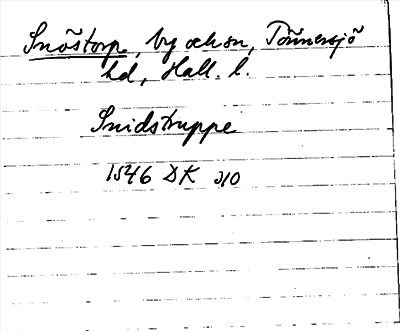 Snöstorp, by och sn, Tönnersjö
hd, Hall. l.
Snidstruppe
1546 DK 210